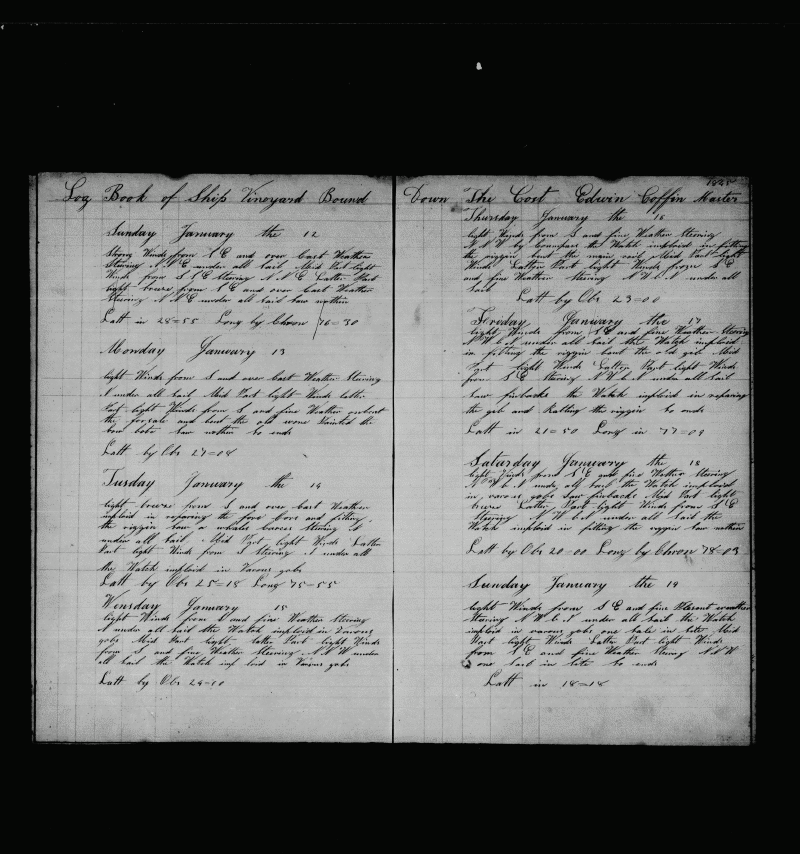 Log Book of Ship Vineyard Bound
Sunday January the 12
Strong Winds from S E and over Cast Weather
Stewing N N E under all Sail Mid Part light
Winds from S S E stewing N N E Latter Part
light breeze from S E and over Cast Weather
Stewing N N E under all Sail Saw nothin
Latt in 28=55 Long by Chron 76=30
Monday January 13
light Winds from S and over Cast Weather Stewing
N under all Sail Mid Part light Winds latter
Part light Winds from S and fine Weather unbent
the foresale and bent the old wone Painted the
bow boat Saw nothin So ends
Latt by Obs 27=04
Tusday January the 14
light breeze from S and over Cast Weather
imploid in reparing the fore and fitting
the riggin Saw a whales Carces Stewing N
under all Sail Mid Part light Winds Latter
Part light Winds from S Stewing N under all
the Watch imploid in Varous gobs
Latt by Obs 25=18 Long 75=55
Wensday January 15
light Winds from S and fine Weather Stewing
N under all Sail the Watch imploid in Varous
gobs Mid Part light latter Part light Winds
from S and fine Weather Stewing N N W under
all Sail the Watch imp loid in Varous gobs
Latt by Obs 24=10
1845
Down The Cost Edwin Coffin Master
Thursday January the 16
light Winds from S and fine Weather Stewing
N N W by Compass the Watch imploid in fitting
the riggin bent the main sail Mid Part light
Winds Latter Part light Winds from S E
and fine Weather stewing N W b N under all
Sail
Latt by Obs 23=00
Friday January the 17
light Winds from S E and fine Weather Stewing
N W b N under all Sail the Watch imploid
in fitting the riggin bent the old gib Mid
Part light Winds Latter Part light Winds
from S E Stewing N W b N under all Sail
Saw finbacks the Watch imploid in reparing
the geb and Ratling the riggin So ends
Latt in 21=50 Long in 77=09
Saturday January the 18
light Winds from S E and fine Wather Stewing
N W b N under all Sail the Watch imploid
in varous gobs Saw finbacks Mid Part light
breeze Latter Part light Winds from S E
Stewing N W b N under all Sail the
Watch imploid in fitting the riggin Saw nothin
Latt by Obs 20=00 Long by Chron 78=03
Sunday January the 19
light Winds from S E and fine Plesent weather
Stewing N W b N under all Sail the Watch
imploid in varous gobs one Sale in Site Mid
Part light Winds Latter Part light Winds
from S E and fine Weather Stewing N N W
one Sail in Site So ends
Latt in 18=18